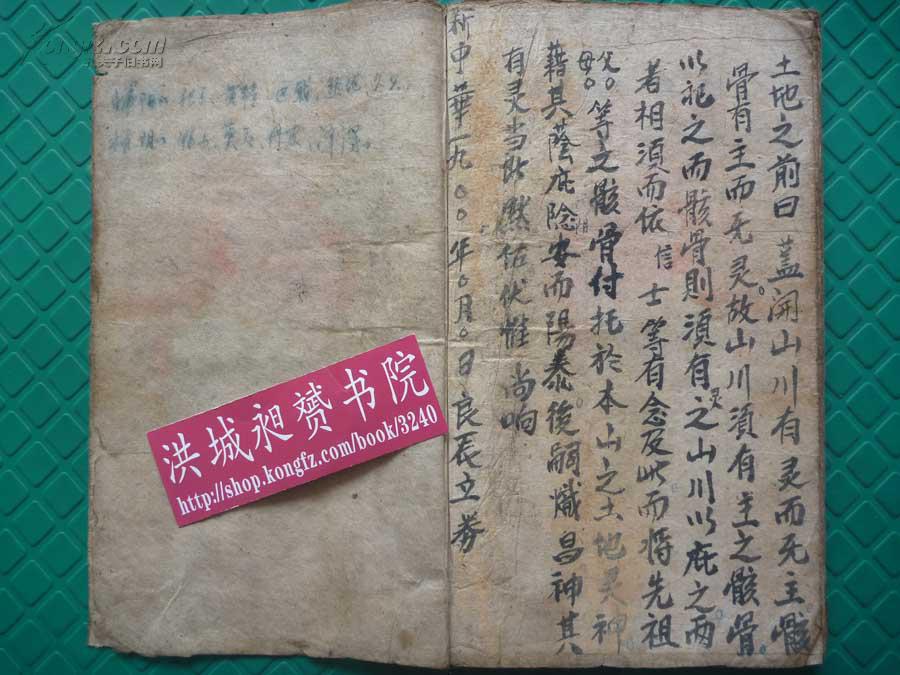 土地之前曰蓋開山川有灵而无主骸
骨有主而无灵故山川須有主之骸骨
以祀之而骸骨則須有灵之山川以庇之两
者相須而依信士等有念及此而将先祖
父母等之骸骨付托於本山之土地灵神
藉其蔭庇陰安而陽泰後嗣熾昌神其
有灵当此默佑伏惟尚响
新中華一九〇〇年〇月〇日良辰立券
洪城昶赟书院
http://shop.kongfz.com/book/3240
孔夫子旧书网